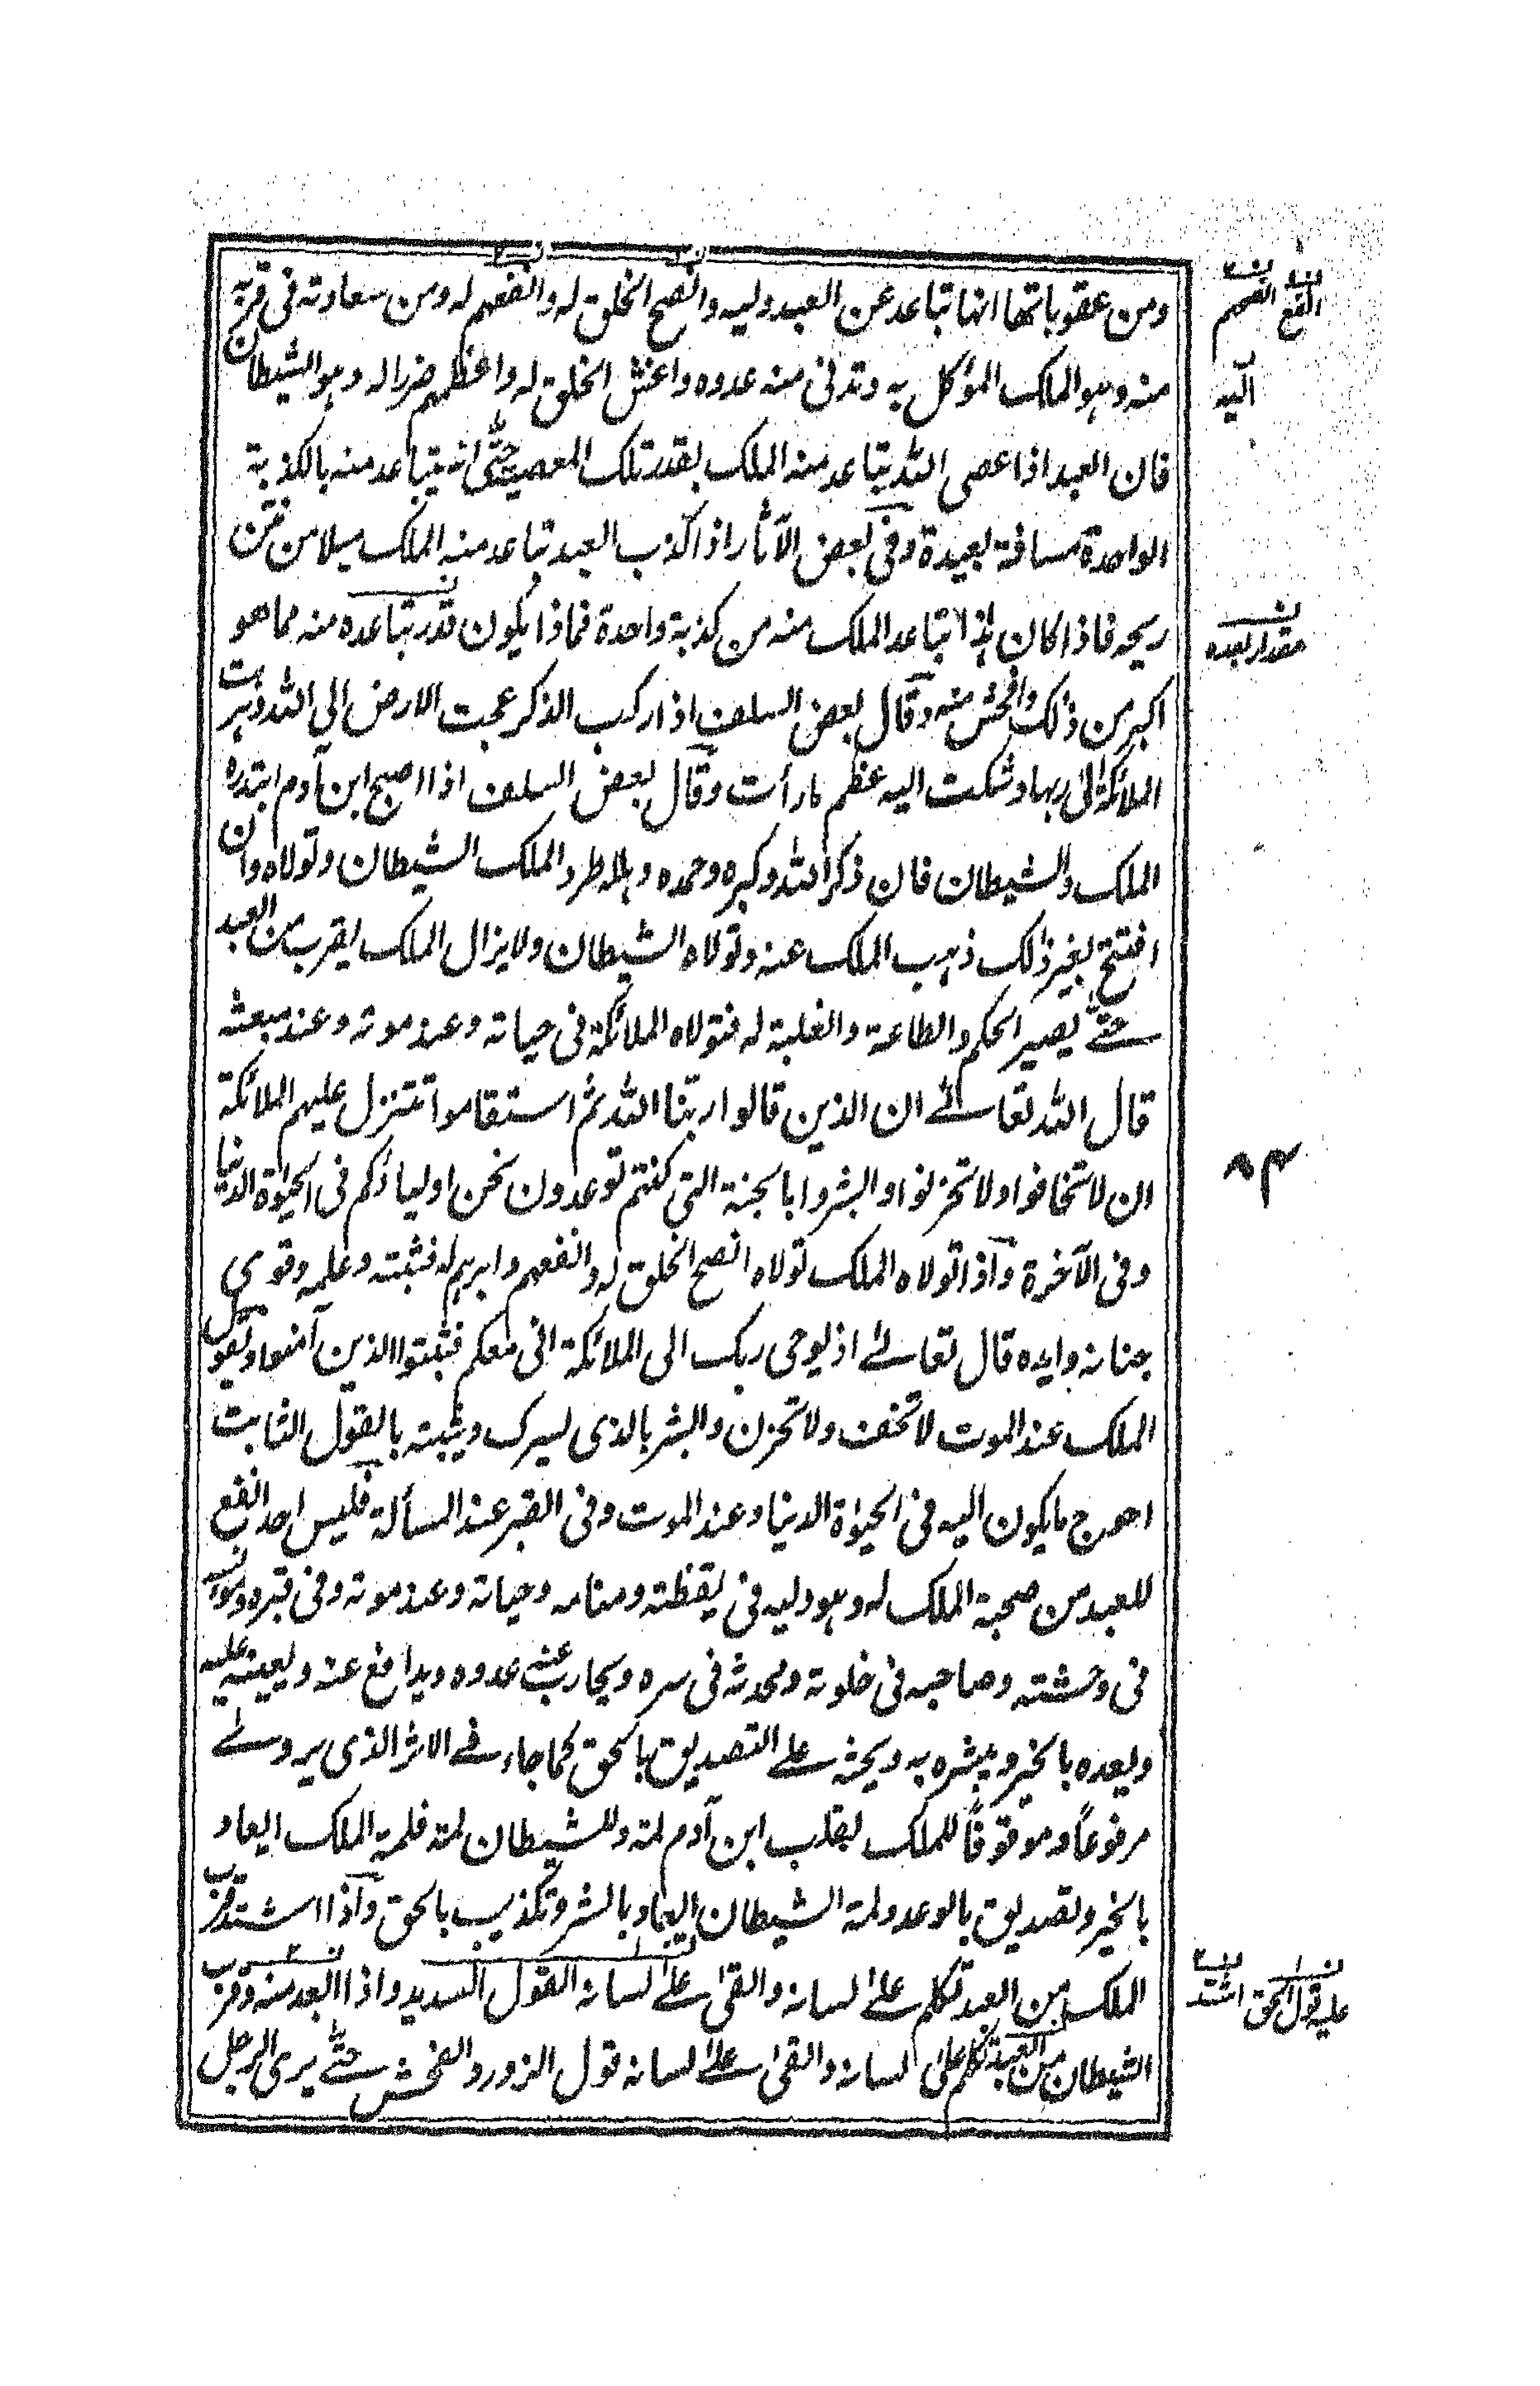 ومن عقوباتها انها تباعد عن العبد وليه وانصح الخلق له وانفعهم له ومن سعادته في قربه
منه وهو الملك المؤكل به وتدنى منه عدوه واغش الخلق له واعظمهم ضررا له وهو الشيطان
فان العبد اذا عصى الله يتباعد منه الملك بقدر تلك المعصية حتى انه يتباعد منه بالكذبة
الواحدة مسافة بعيدة وفى بعض الآثار اذا كذب العبد تباعد منه الملك ميلا من نتن
ريحه فاذا كان هذا تباعد الملك منه من كذبة واحدة فماذا يكون قدر تباعده منه مما هو
اكبر من ذلك وافحش منه وقال بعض السلف اذا ركب الذكر عجت الارض الى الله وهربت
الملائكة الى ربها وشكت اليه عظم ما رأت وقال بعض السلف اذا اصبح ابن آدم ابتدره
الملك والشيطان فان ذكر الله وكبره وحمده وهلله طرد الملك الشيطان وتولاه وان
افتتح بغير ذلك ذهب الملك عنه وتولاه الشيطان ولا يزال الملك يقرب من العبد
حتى يصير الحكم والطاعة والغلبة له فتولاه الملائكة فى حياته وعند موته وعند مبعثه
قال الله تعالى ان الذين قالوا ربنا الله ثم استقاموا تتنزل عليهم الملائكة
ان لا تخافوا ولا تحزنوا وابشروا بالجنة التى كنتم توعدون نحن اولياؤكم فى الحيوة الدنيا
وفى الآخرة واذا تولاه الملك تولاه انصح الخلق له وانفعهم وابرهم له فثبته وعلمه وقوى
جنانه وايده قال تعالى اذ يوحى ربك الى الملائكة انى معكم فثبتوا الذين آمنوا ويقول
الملك عند الموت لا تخف ولا تحزن وابشر بالذى يسرك ويثبته بالقول الثابت
احوج ما يكون اليه فى الحيوة الدنيا وعند الموت وفى القبر عند المسألة فليس احد انفع
للعبد من صحبة الملك له وهو وليه فى يقظته ومنامه وحياته وعند موته وفى قبره ومؤانسه
فى وحشته وصاحبه فى خلوته ومحدثه فى سره ويحارب عنه عدوه ويدافع عنه ويعينه عليه
ويعده بالخير ويبشره به ويحثه على التصديق بالحق كما جاء فى الاثر الذى يروى
مرفوعاً وموقوفاً للملك بقلب ابن آدم لمة وللشيطان لمة فلمة الملك ايعاد
بالخير وتصديق بالوعد ولمة الشيطان ايعاد بالشر وتكذيب بالحق واذا اشتد قرب
الملك من العبد تكلم على لسانه والقى على لسانه القول السديد واذا ابعد منه وقرب
الشيطان من العبد تكلم على لسانه والقى على لسانه قول الزور والفحش حتى يرى الرجل
انفع انفعهم
اليه
مقدار بعده
٨٤
عليه قول الحق اشتد